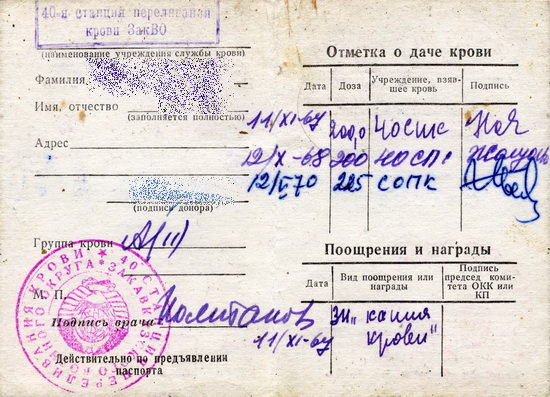 40-я станция переливания
крови ЗакВО
(наименование учреждения службы крови)
Фамилия
Имя, отчество
(заполняется полностью)
Адрес
(подпись донора)
Группа крови А(II)
М. П.
Подпись врача
11/XI-67
Действительно по предъявлении
паспорта
40 СТАНЦИЯ ПЕРЕЛИВАНИЯ КРОВИ
ЗАКАВКАЗСКОГО ВОЕННОГО ОКРУГА
Отметка о даче крови
Дата Доза Учреждение, взяв-
шее кровь Подпись
11/XI-67 200,0 40 СПК
12/X-68 200 40 СПК
12/V-70 225 СОПК
Поощрения и награды
Дата Вид поощрения или
награды Подпись
председ. коми-
тета ОКК или
КП
Зн. "капля
крови"